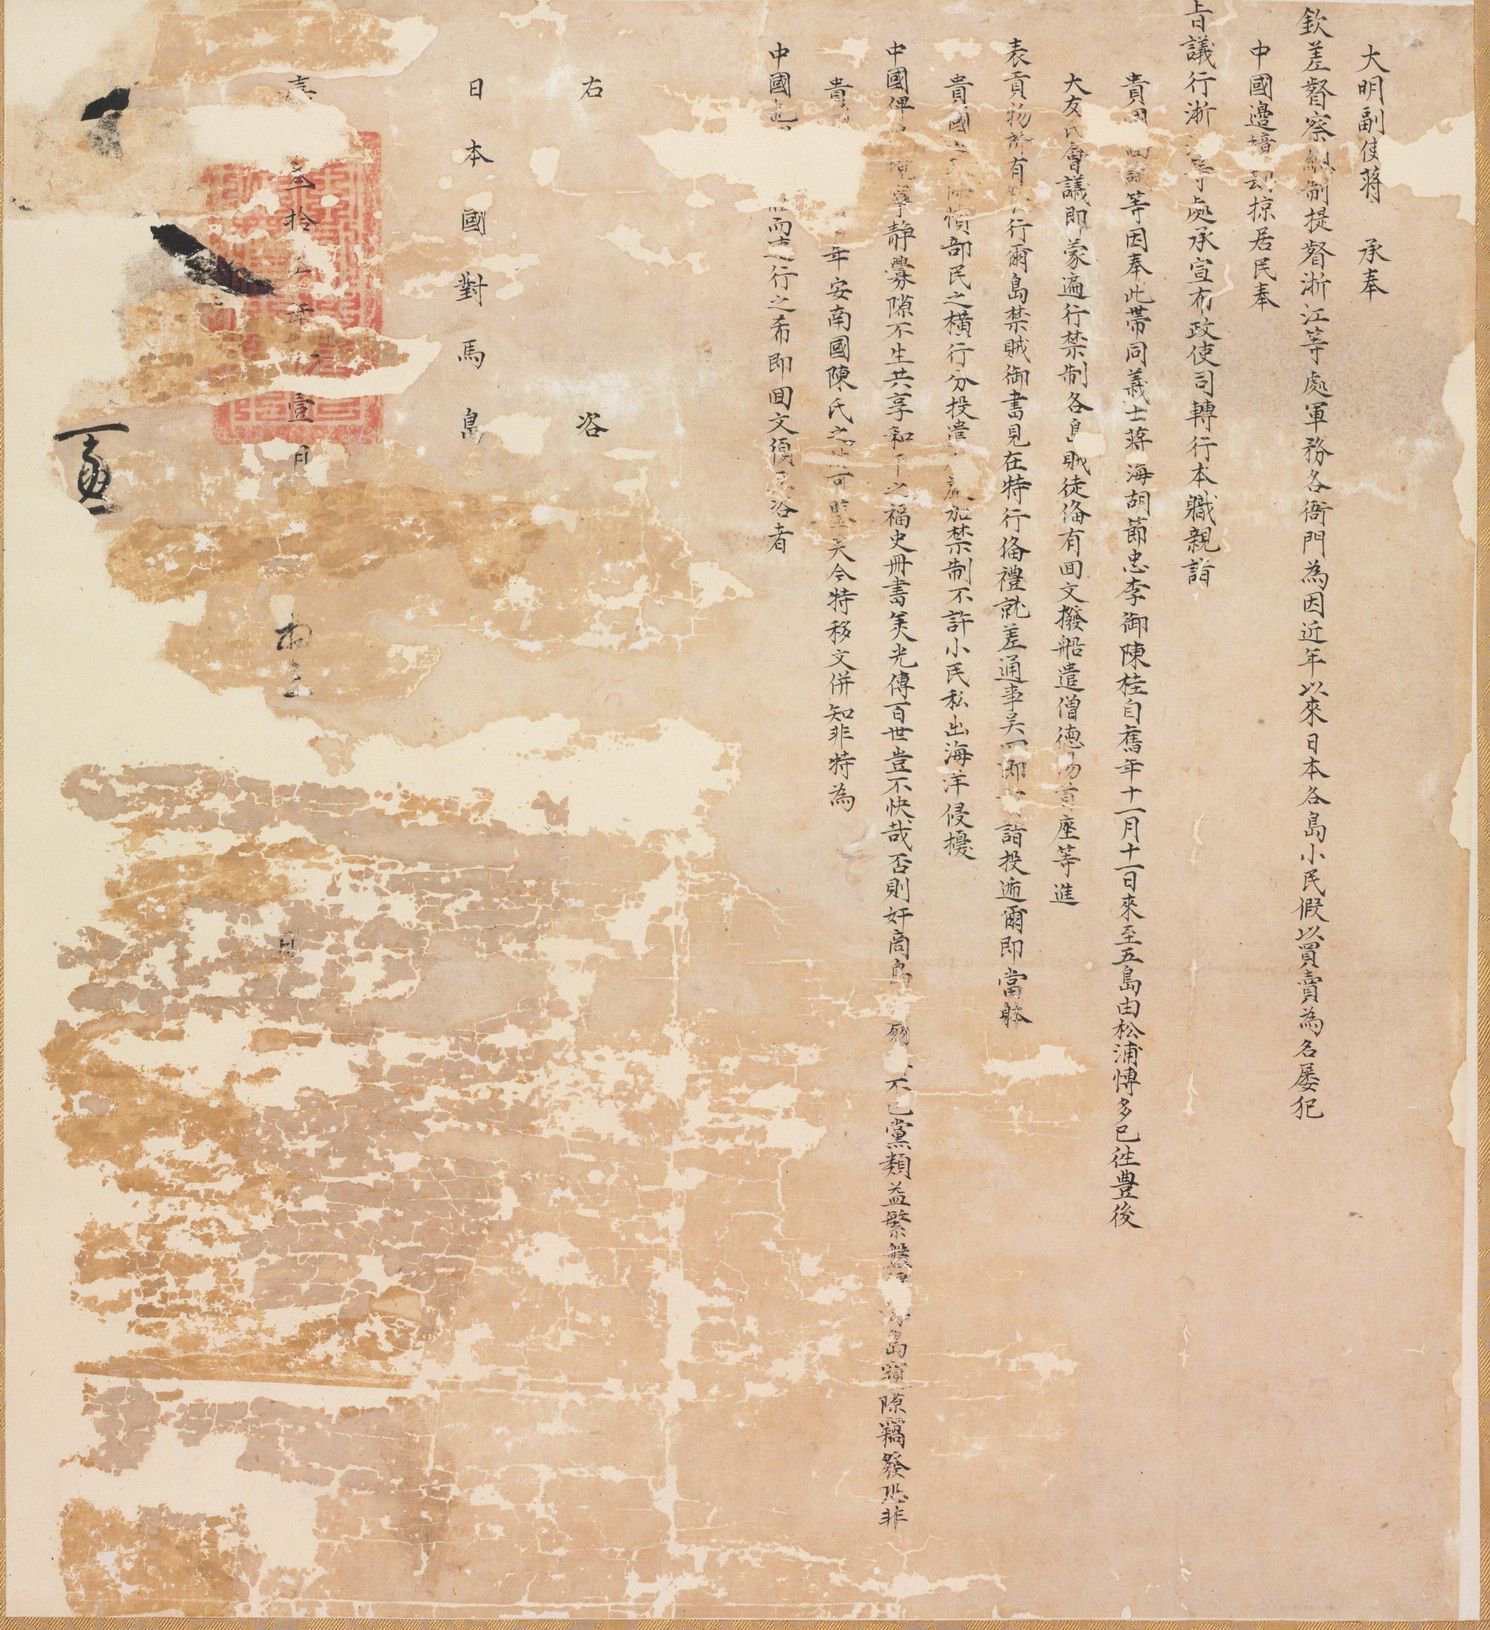 大明副使蔣 承奉
欽差督察總制提督浙江等處軍務各衙門為因近年以來日本各島小民假以買賣為名屡犯
中國邊境刼掠居民奉
旨議行浙 等處承宣布政使司轉行本職親詣
貴國 等因奉此帶同義士蔣海胡節忠李御陳桂自舊年十一月十一日來至五島由松浦博多已徃豊後
大友氏會議即蒙遍行禁制各島賊徒俻有囬文撥船遣僧德陽首座等進
表貢物所有 行爾島禁賊御書見在特行俻禮就差通事吳四郎 詣投遞爾即當躰
貴國之 憤部民之橫行分投遣 嚴加禁制不許小民私出海洋侵擾
中國俾 境寧靜釁隙不生共享和平之福史冊書美光傳百世豈不快哉否則奸商島 不已黨類益繁 海島窺隙竊發恐非
貴 年安南國陳氏之 可鑒矣今特移文併知非特為
中國 而 行之希即囬文須至咨者
右 咨
日本國對馬島
嘉 叁拾五年 壹月 日